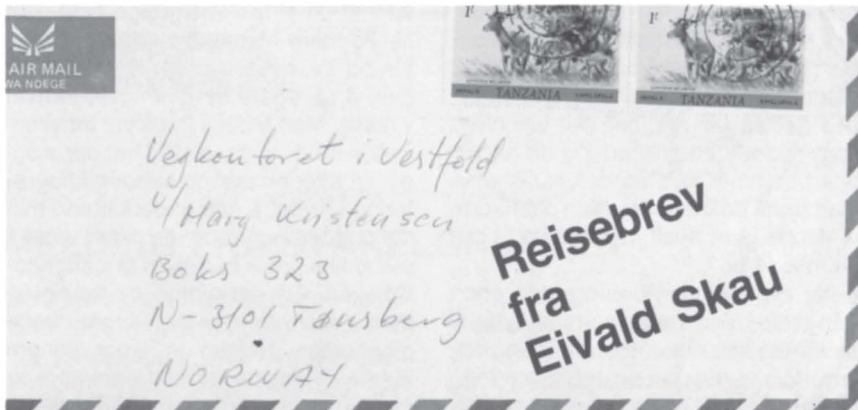 AIR MAIL
WA NDEGE
1/-
1/-
TANZANIA
TANZANIA
Vegkontoret i Vestfold
v/ Marg Kristensen
Boks 323
N-3101 Tønsberg
NORWAY
Reisebrev
fra
Eivald Skau